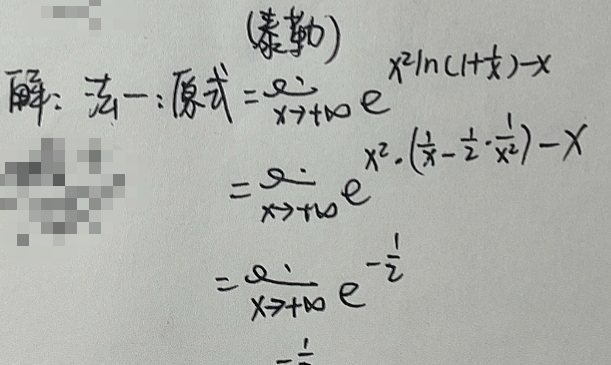 (泰勒)
解: 法一: 原式 = lim x→+∞ e^{x²ln(1+1/x)-x}
= lim x→+∞ e^{x²·(1/x-1/2·1/x²)-x}
= lim x→+∞ e^{-1/2}
-1/2